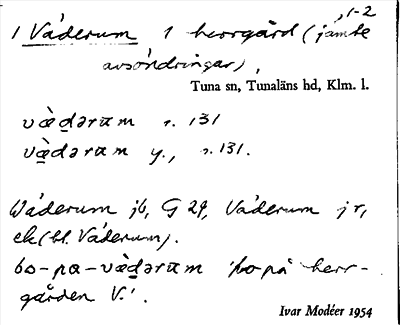 , 1-2
1 Väderum 1 herrgård (jämte
avsöndringar),
Tuna sn, Tunaläns hd, Klm. l.
væ̀dərum r. 131
væ̀dərum y., r. 131.
Wäderum jb, G 29, Väderum jr,
ek (bl. Väderum).
bo-pa-væ̀dərum 'bo på herr-
gården V.'.
Ivar Modéer 1954